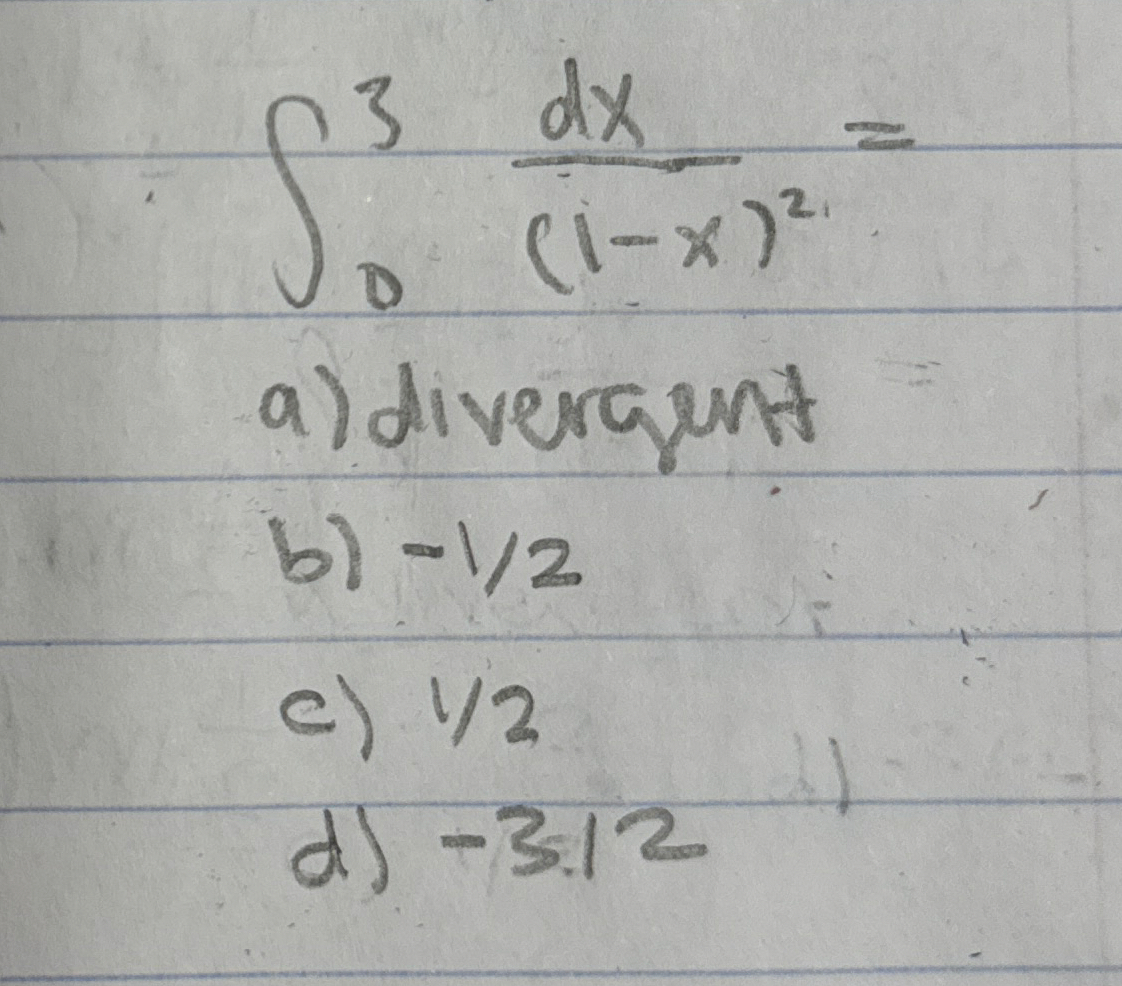 ∫₀³ dx/(1-x)² =
a) divergent
b) -1/2
c) 1/2
d) -3/2